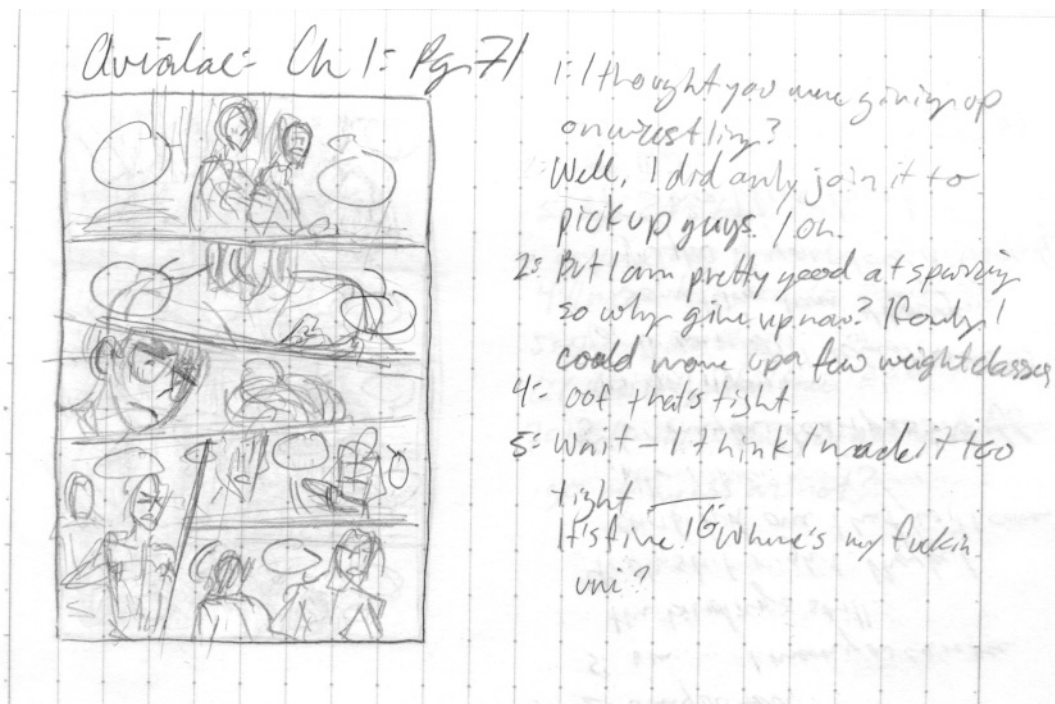 Avialae: Ch 1: Pg. 71
1: I thought you were giving up
on wrestling?
Well, I did only join it to
pick up guys. 1 on.
2: But I am pretty good at sparring
so why give up now? If only I
could move up a few weight classes
4: oof that's tight.
5: Wait - I think I made it too
tight
It's fine. Where's my fuckin
uni?